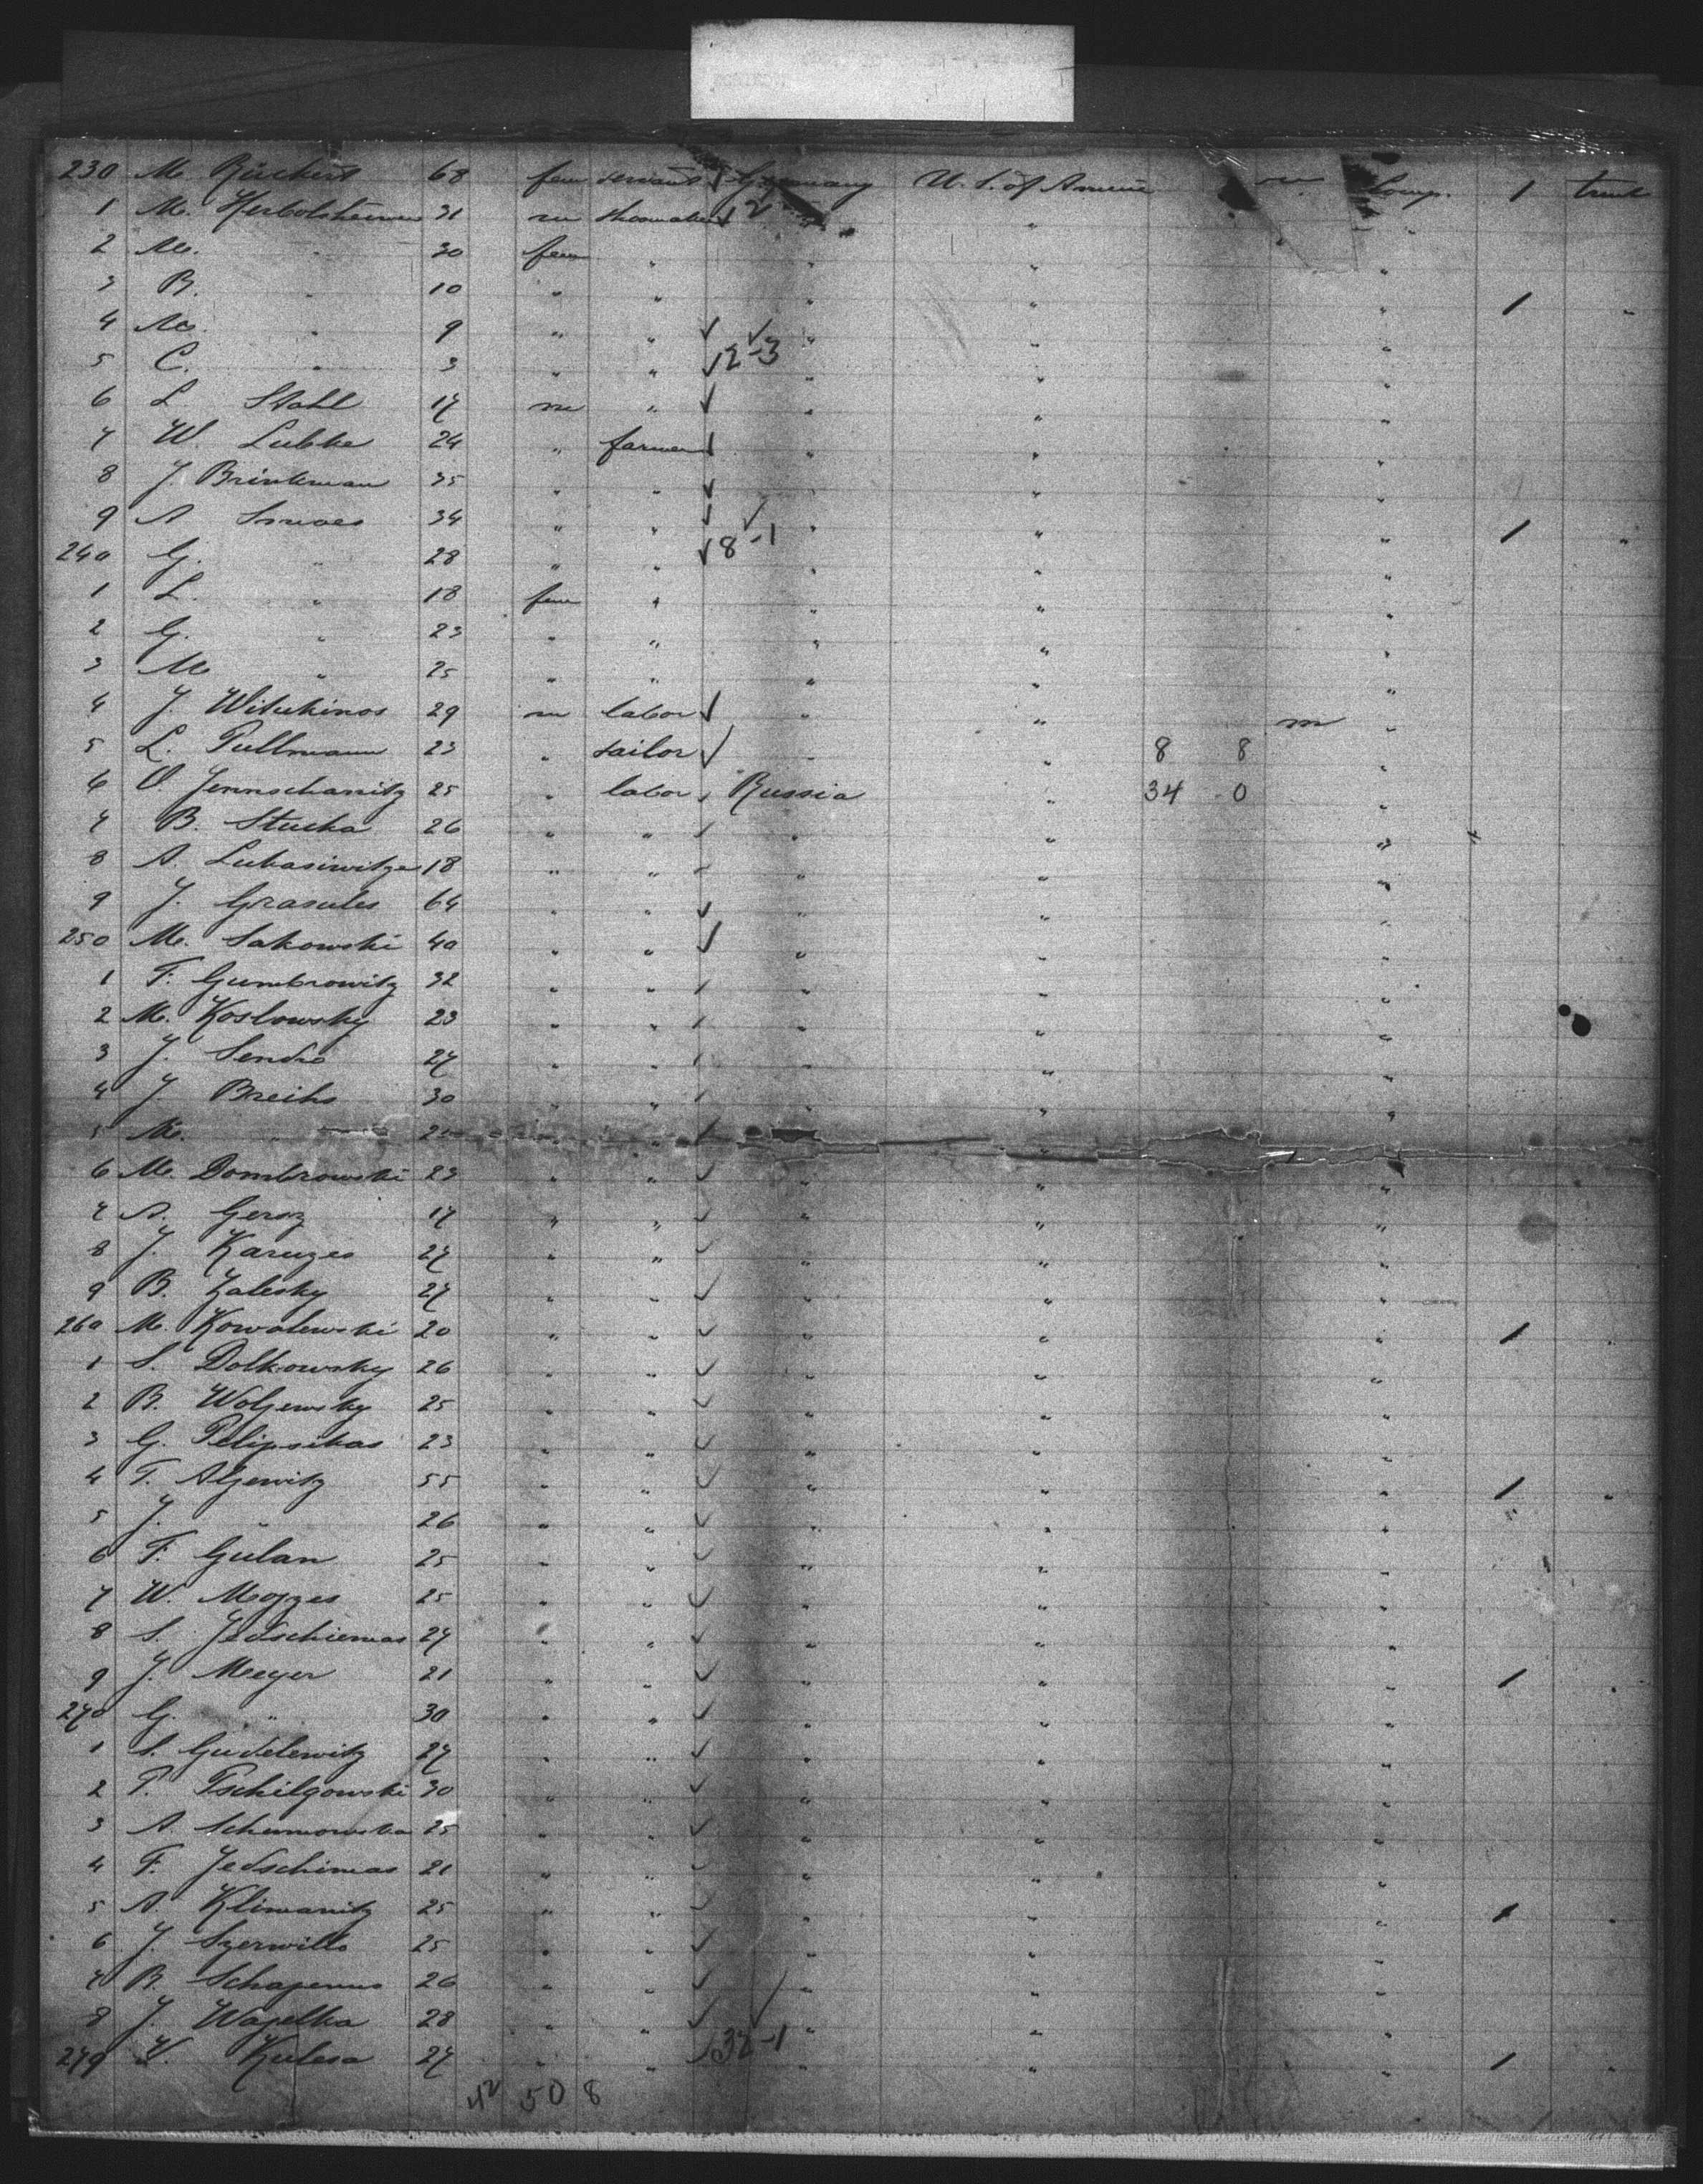 230 M. Rückert 68 fem servant Germany U. S. of Americ m Comp. 1 trunk
1 M. Herbolsheimer 31 m shoemaker 12 " "
2 M. " 30 fem " " " "
3 B. " 10 " " " " " 1 "
4 M. " 9 " " " " "
5 C. " 3 " " 2-3 " " "
6 L. Stahl 17 m " " " "
7 W. Lubke 24 " farmer " " "
8 J. Brinkman 35 " " " " "
9 A 34 " " " " " 1 "
240 G. " 28 " " 8-1 " " "
1 L. " 18 fem " " " "
2 G. " 23 " " " " "
3 M " 25 " " " " "
4 J. Witukinos 29 m labor " " m "
5 L. Pullmann 23 " tailor " " 8 8 "
6 O. Jennschanitz 25 " labor Russia " 34 0 "
7 B. Stucka 26 " " " " "
8 A. Lukasiwitze 18 " " " " "
9 J. Grasules 64 " " " " "
250 M. Sakowski 40 " " " " "
1 F. Gumbrowitz 32 " " " " "
2 M. Koslowsky 23 " " " " "
3 J. Sendro 27 " " " " "
4 J. Breiho 30 " " " " "
5 M. " "
6 M. Dombrowski 23 " " " " "
7 A. Gersz 17 " " " " "
8 J. Karuzes 27 " " " "
9 B. Zalesky 27 " " " " "
260 M. Kowalewski 20 " " " " " 1 "
1 S. Dolkowsky 26 " " " " "
2 B. Woljewsky 25 " " " " "
3 G. Pelipsikas 23 " " " " "
4 T. Aljewitz 55 " " " " " 1 "
5 J. " 26 " " " " "
6 F. Gulan 25 " " " " "
7 W. Mozges 25 " " " " "
8 S. Jedschiemas 27 " " " " "
9 J. Meyer 21 " " " " " 1 "
270 G. " 30 " " " " "
1 S. Gudelewitz 27 " " " " "
2 P. Tschilgowski 30 " " " " "
3 A. Schumowska 25 " " " " "
4 F. Jedschimas 21 " " " " "
5 A. Klimanitz 25 " " " " " 1 "
6 J. Szerwills 25 " " " " "
7 B. Schapenus 26 " " " " "
8 J. Wapelka 28 " " " " "
279 Kulesa 27 " " 32-1 " " " 1 "
42 50 8